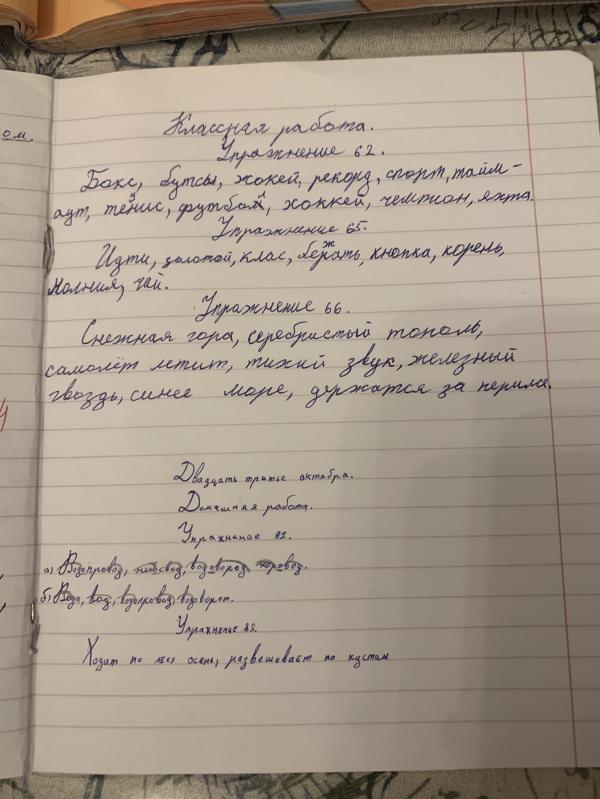 ом
Классная работа.
Упражнение 62.
Бокс, бутсы, жокей, рекорд, спорт, тайм-
аут, тенис, футбол, хоккей, чемпион, яхта.
Упражнение 65.
Идти, золотой, клас, бежать, кнопка, корень,
молния, чай.
Упражнение 66.
Снежная гора, серебристый тополь,
самолёт летит, тихий звук, железный
гвоздь, синее море, держатся за перила.
Двадцать третье октабря.
Домашняя работа.
Упражнение 82.
а) Водопровод, водовород, хоровод.
б) Вода, вод, водопровод, водворот.
Упражнение 83.
Ходит по лесу осень, развешивает по кустам